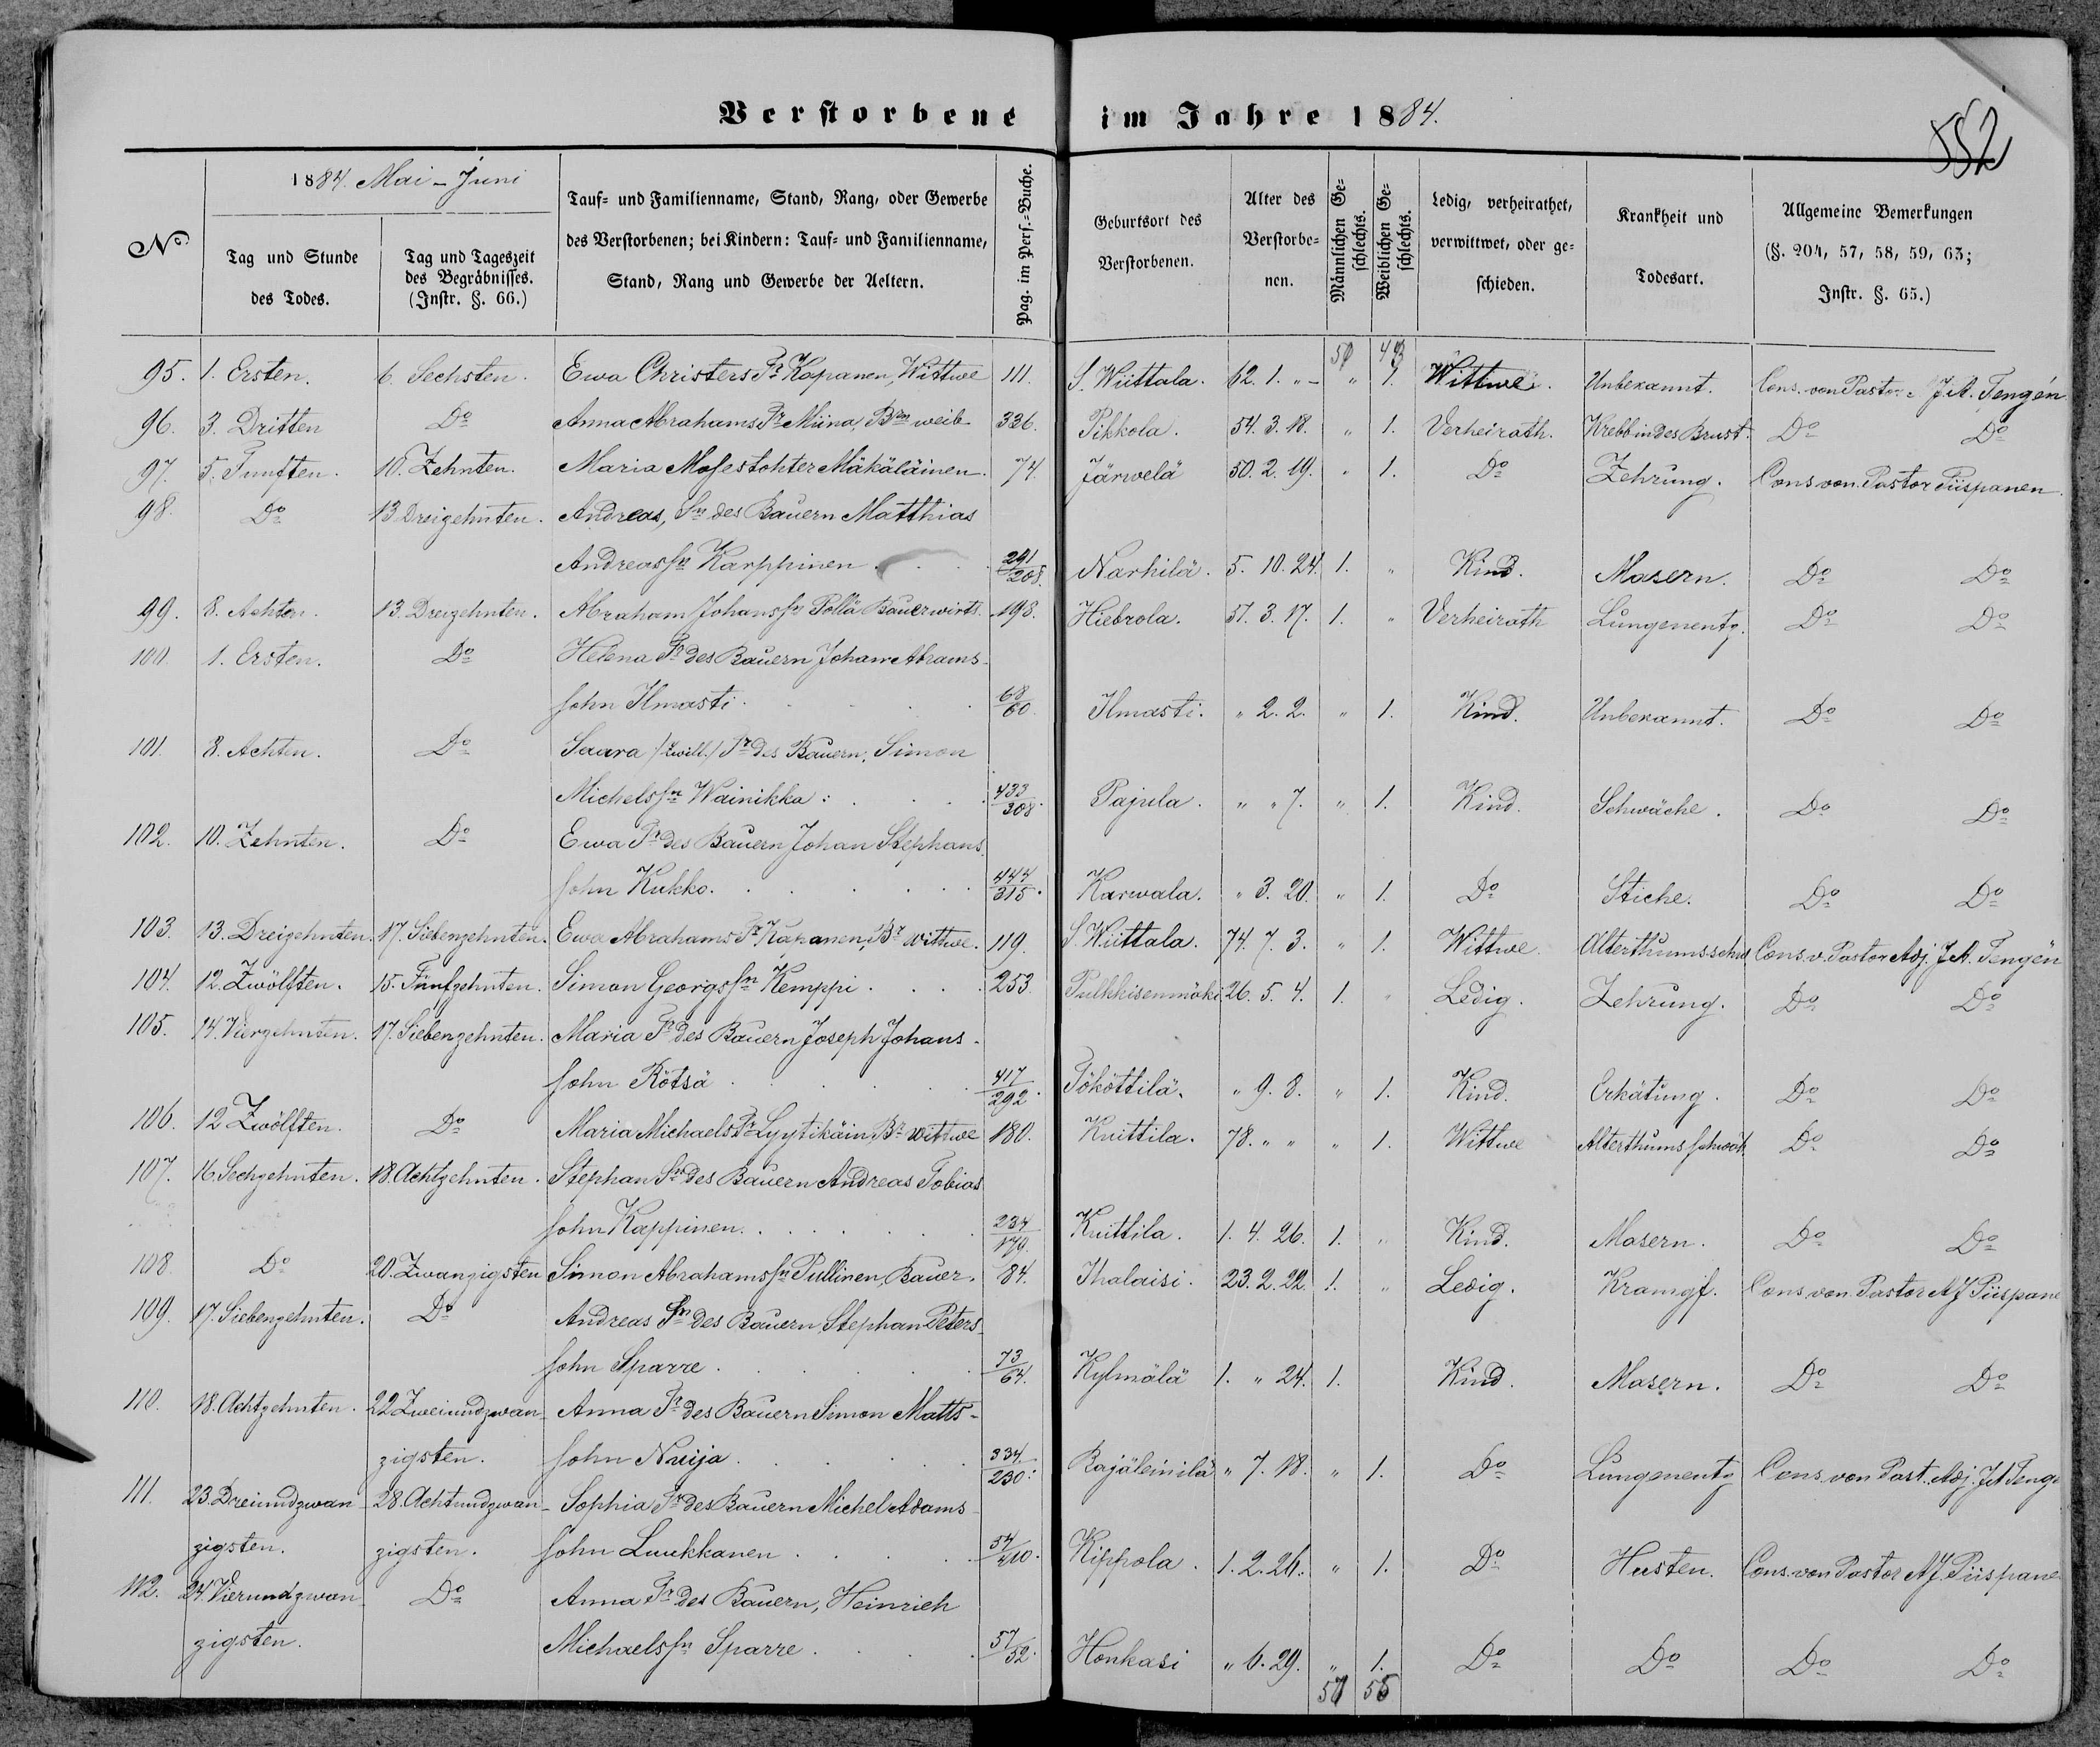 Verstorbene im Jahre 1884.
552
1884. Mai - Juni
№
Tag und Stunde des Todes.
Tag und Tageszeit des Begräbnisses. (Instr. §. 66.)
Tauf- und Familienname, Stand, Rang, oder Gewerbe des Verstorbenen; bei Kindern: Tauf- und Familienname, Stand, Rang und Gewerbe der Aeltern.
Pag. im Pers.-Buche.
Geburtsort des Verstorbenen.
Alter des Verstorbenen.
Männlichen Geschlechts.
Weiblichen Geschlechts.
Ledig, verheirathet, verwittwet, oder geschieden.
Krankheit und Todesart.
Allgemeine Bemerkungen (§. 204, 57, 58, 59, 63; Instr. §. 65.)
95. 1. Ersten. 6. Sechsten. Ewa Christers Tr Kapanen, Wittwe 111. S. Wiittala. 62. 1. „ - „ 1. Wittwe. Unbekannt. Cons. von Pastor J. A. Tengén
96. 3. Dritten Do Anna Abrahams Tr Miina, Brn weib 326. Pihkola. 54. 3. 18. „ 1. Verheirath. Krebb in des Brust. Do Do
97. 5. Funften. 10. Zehnten. Maria Mosestohter Mäkäläinen. 74. Järwelä 50. 2. 19. „ 1. Do Zehrung. Cons von Pastor Piispanen.
98. Do 13 Dreizehnten. Andreas, Sn des Bauern Matthias
Andreassn Karppinen . . . 291/208. Narhilä. 5. 10. 24. 1. „ Kind. Masern. Do Do
99. 8. Achten. 13. Dreizehnten. Abraham Johanssn Pöllä Bauerwirts. 198. Hiebrola. 51. 3. 17. 1. „ Verheirath Lungenentz. Do Do
100. 1. Ersten. Do Helena Tr des Bauern Johan Abrams-
sohn Ilmasti . . . . 68/60. Ilmasti. „ 2. 2. „ 1. Kind. Unbekannt. Do Do
101. 8. Achten. Do Saara /:zwill:/ Tr des Bauern, Simon
Michelssn Wainikka: . . . 433/308. Pajula. „ „ 7. „ 1. Kind. Schwäche. Do Do
102. 10. Zehnten. Do Ewa Tr des Bauern Johan Stephans-
sohn Kukko. . . . . 444/315. Karwala. „ 3. 20. „ 1. Do Stiche. Do Do
103. 13. Dreizehnten. 17. Siebenzehnten. Ewa Abrahams Tr Kapanen, Br Wittwe. 119. S. Wiittala. 74. 7. 3. „ 1. Wittwe Alterthumsschw Cons. v. Pastor Adj. J A. Tengén
104. 12. Zwölften. 15. Fünfzehnten. Simon Georgssn Kemppi . . . . 253. Pulkkisenmäki 26. 5. 4. 1. „ Ledig. Zehrung. Do Do
105. 14. Vierzehnten. 17. Siebenzehnten. Maria Tr des Bauern Joseph Johans-
sohn Rötsä . . . . 417/292. Pököttilä. „ 9. 8. „ 1. Kind. Erkätung. Do Do
106. 12 Zwölften. Do Maria Michaels Tr Lyytikäin, Br Wittwe 180. Kuittila. 78. „ „ „ 1. Wittwe Alterthums schwäch Do Do
107. 16. Sechzehnten. 18. Achtzehnten. Stephan Sn des Bauern Andreas Tobias
sohn Kappinen. . . . . 234/170. Kuittila. 1. 4. 26. 1. „ Kind. Masern. Do Do
108 Do 20. Zwanzigsten Simon Abrahamssn Pullinen, Bauer. 84. Ihalaisi. 23. 2. 22. 1. „ Ledig. Krampf. Cons. von Pastor A J Piispane
109. 17. Siebenzehnten. Do Andreas Sn des Bauern Stephan Peters-
sohn Sparre . . . . 73/64. Kylmälä 1. „ 24. 1. Kind. Masern. Do Do
110. 18. Achtzehnten. 22 Zweiundzwan- Anna Tr des Bauern Simon Matts-
zigsten. sohn Nuija . . . . 334/230. Rajäleinilä „ 7. 18. „ 1. Do Lungenentz Cons von Past. Adj. J A Tenge
111. 23. Dreiundzwan- 28. Achtundzwan- Sophia Tr des Bauern Michel Adams-
zigsten. zigsten. sohn Luukkanen . . . . 57/410. Kippola. 1. 2. 26. „ 1. Do Husten. Cons. von Pastor A J. Piispane
112. 24. Vierundzwan- Do Anna Tr des Bauern, Heinrich
zigsten. Michaelssn Sparre . . . . 57/52. Honkasi „ 6. 29. „ 1. Do Do Do Do